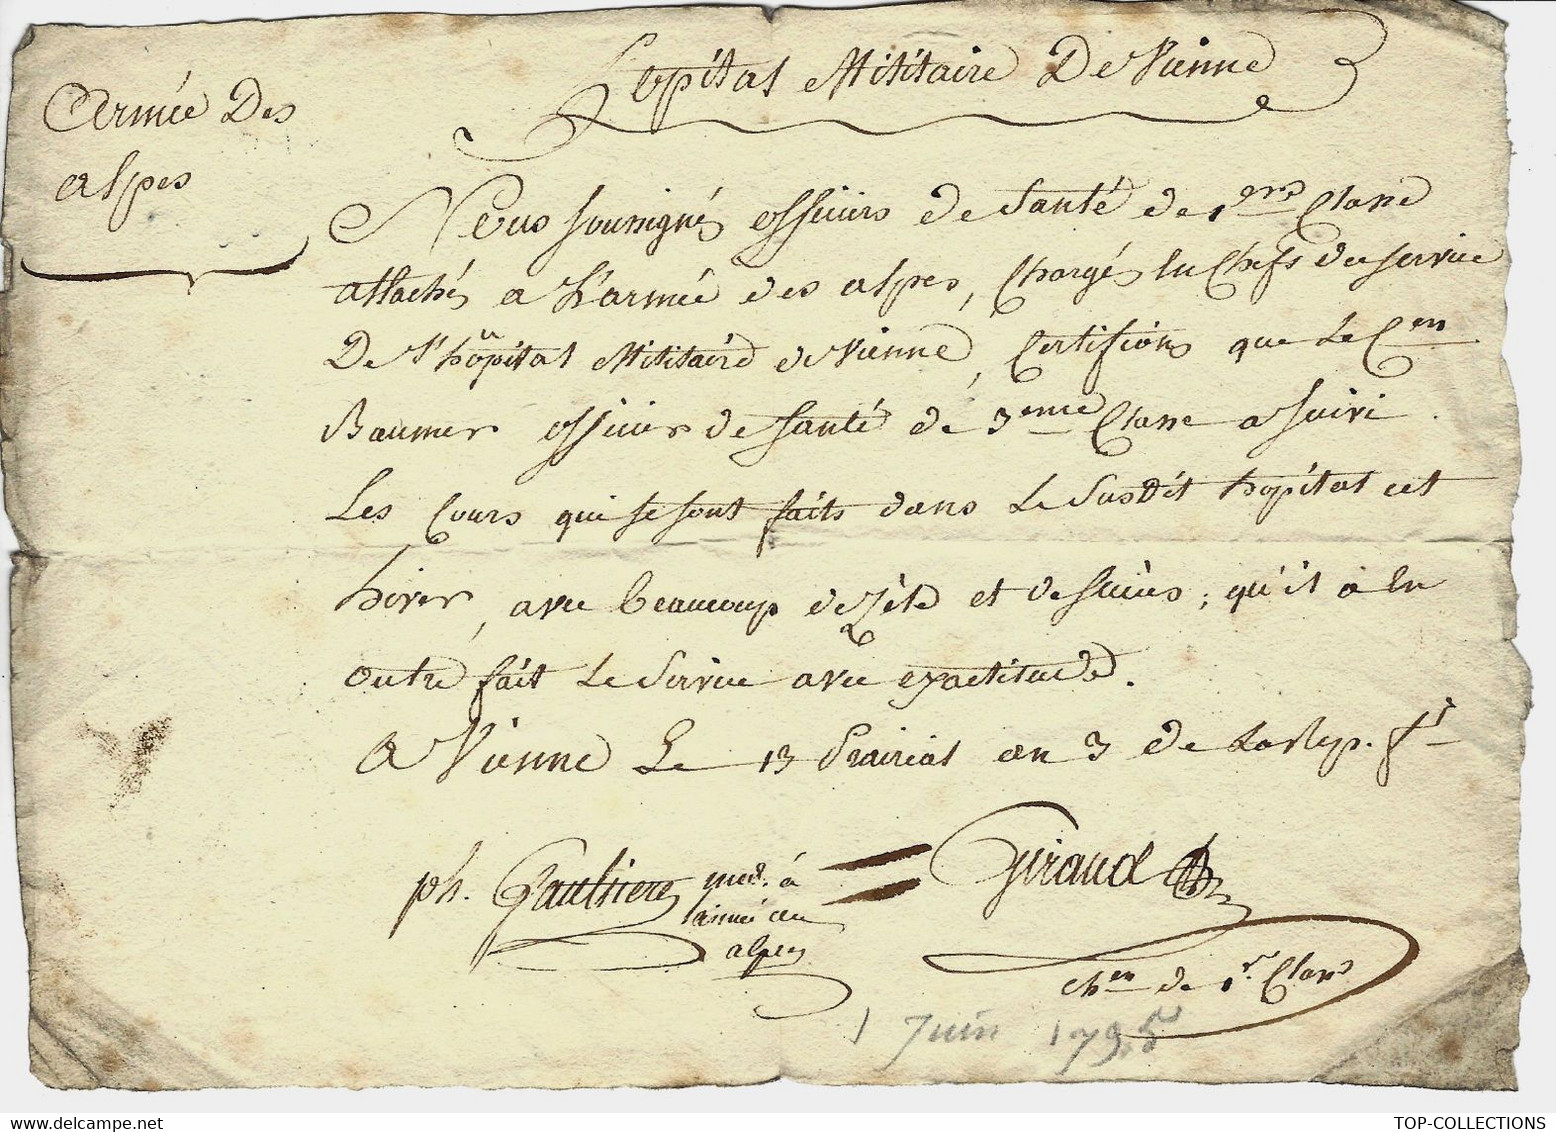 Armée Des
alpes
hopital Militaire De Vienne
Nous soussignés officiers de Santé de 1ere Classe
attachés a L'armée des alpes, Chargés en Chefs du service
De l'hôpital Militaire de Vienne, Certifions que Le Cen
Baumer officier de Santé de 3eme Classe a suivi
Les Cours qui se sont faits dans Le Susdit hopital cet
hiver, avec beaucoup de Zèle et de succès ; qu'il à en
outre fait Le Service avec exactitude.
A Vienne Le 13 Prairial an 3 de La Rep. fse
ph. Gaultier med. à
l'armée des
alpes
Giraud
chen de 1re Classe
1 Juin 1795
TOP-COLLECTIONS